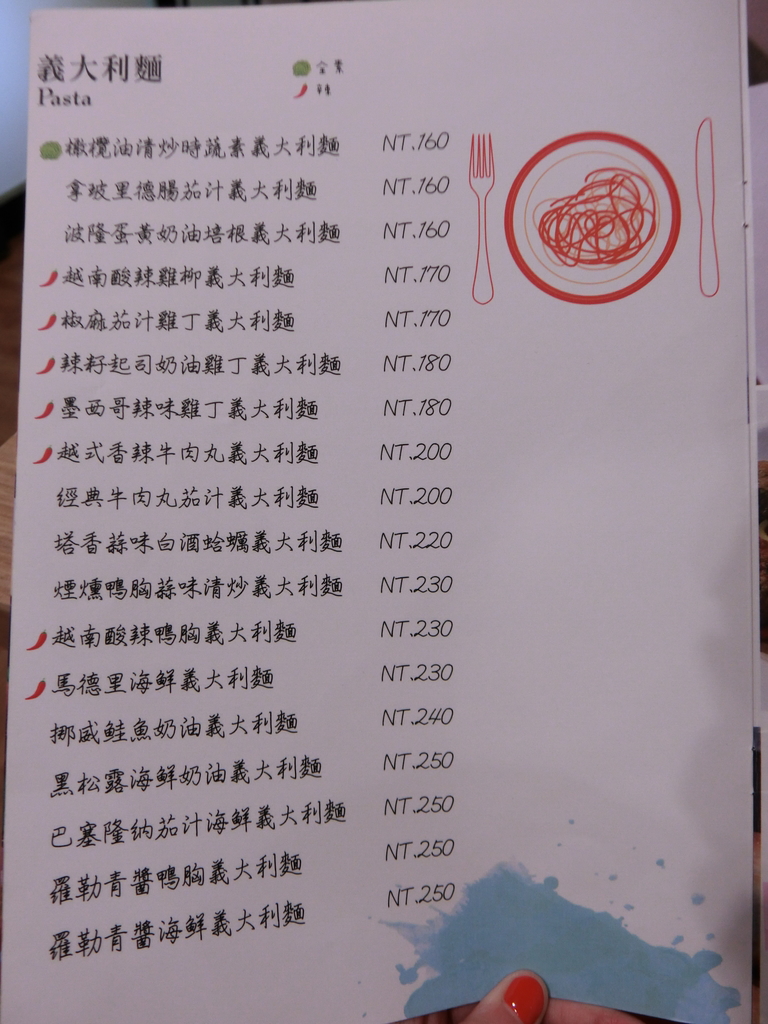 義大利麵
Pasta
全素
辣
橄欖油清炒時蔬素義大利麵 NT.160
拿坡里德腸茄汁義大利麵 NT.160
波隆蛋黃奶油培根義大利麵 NT.160
越南酸辣雞柳義大利麵 NT.170
椒麻茄汁雞丁義大利麵 NT.170
辣籽起司奶油雞丁義大利麵 NT.180
墨西哥辣味雞丁義大利麵 NT.180
越式香辣牛肉丸義大利麵 NT.200
經典牛肉丸茄汁義大利麵 NT.200
塔香蒜味白酒蛤蠣義大利麵 NT.220
煙燻鴨胸蒜味清炒義大利麵 NT.230
越南酸辣鴨胸義大利麵 NT.230
馬德里海鮮義大利麵 NT.230
挪威鮭魚奶油義大利麵 NT.240
黑松露海鮮奶油義大利麵 NT.250
巴塞隆納茄汁海鮮義大利麵 NT.250
羅勒青醬鴨胸義大利麵 NT.250
羅勒青醬海鮮義大利麵 NT.250